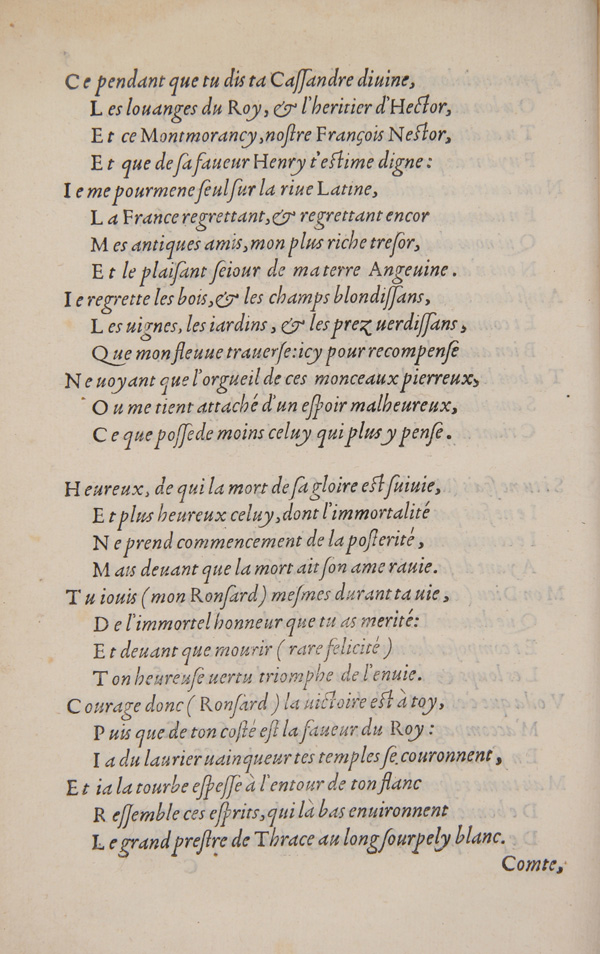 Ce pendant que tu dis ta Caſſandre diuine,
Les louanges du Roy, & l'heritier d'Hector,
Et ce Montmorancy, noſtre François Neſtor,
Et que de ſa faueur Henry t'eſtime digne:
Ie me pourmene ſeul ſur la riue Latine,
La France regrettant, & regrettant encor
Mes antiques amis, mon plus riche treſor,
Et le plaiſant ſeiour de ma terre Angeuine.
Ie regrette les bois, & les champs blondiſſans,
Les uignes, les iardins, & les prez uerdiſſans,
Que mon fleuue trauerſe: icy pour recompenſe
Ne uoyant que l'orgueil de ces monceaux pierreux,
Ou me tient attaché d'un eſpoir malheureux,
Ce que poſſede moins celuy qui plus y penſe.
Heureux, de qui la mort de ſa gloire eſt ſuiuie,
Et plus heureux celuy, dont l'immortalité
Ne prend commencement de la poſterité,
Mais deuant que la mort ait ſon ame rauie.
Tu iouis (mon Ronſard) meſmes durant ta uie,
De l'immortel honneur que tu as merité:
Et deuant que mourir (rare felicité)
Ton heureuſe uertu triomphe de l'enuie.
Courage donc (Ronſard) la uictoire eſt à toy,
Puis que de ton coſté eſt la faueur du Roy:
Ia du laurier uainqueur tes temples ſe couronnent,
Et ia la tourbe eſpeſſe à l'entour de ton flanc
Reſſemble ces eſprits, qui là bas enuironnent
Le grand preſtre de Thrace au long ſourpely blanc.
Comte,